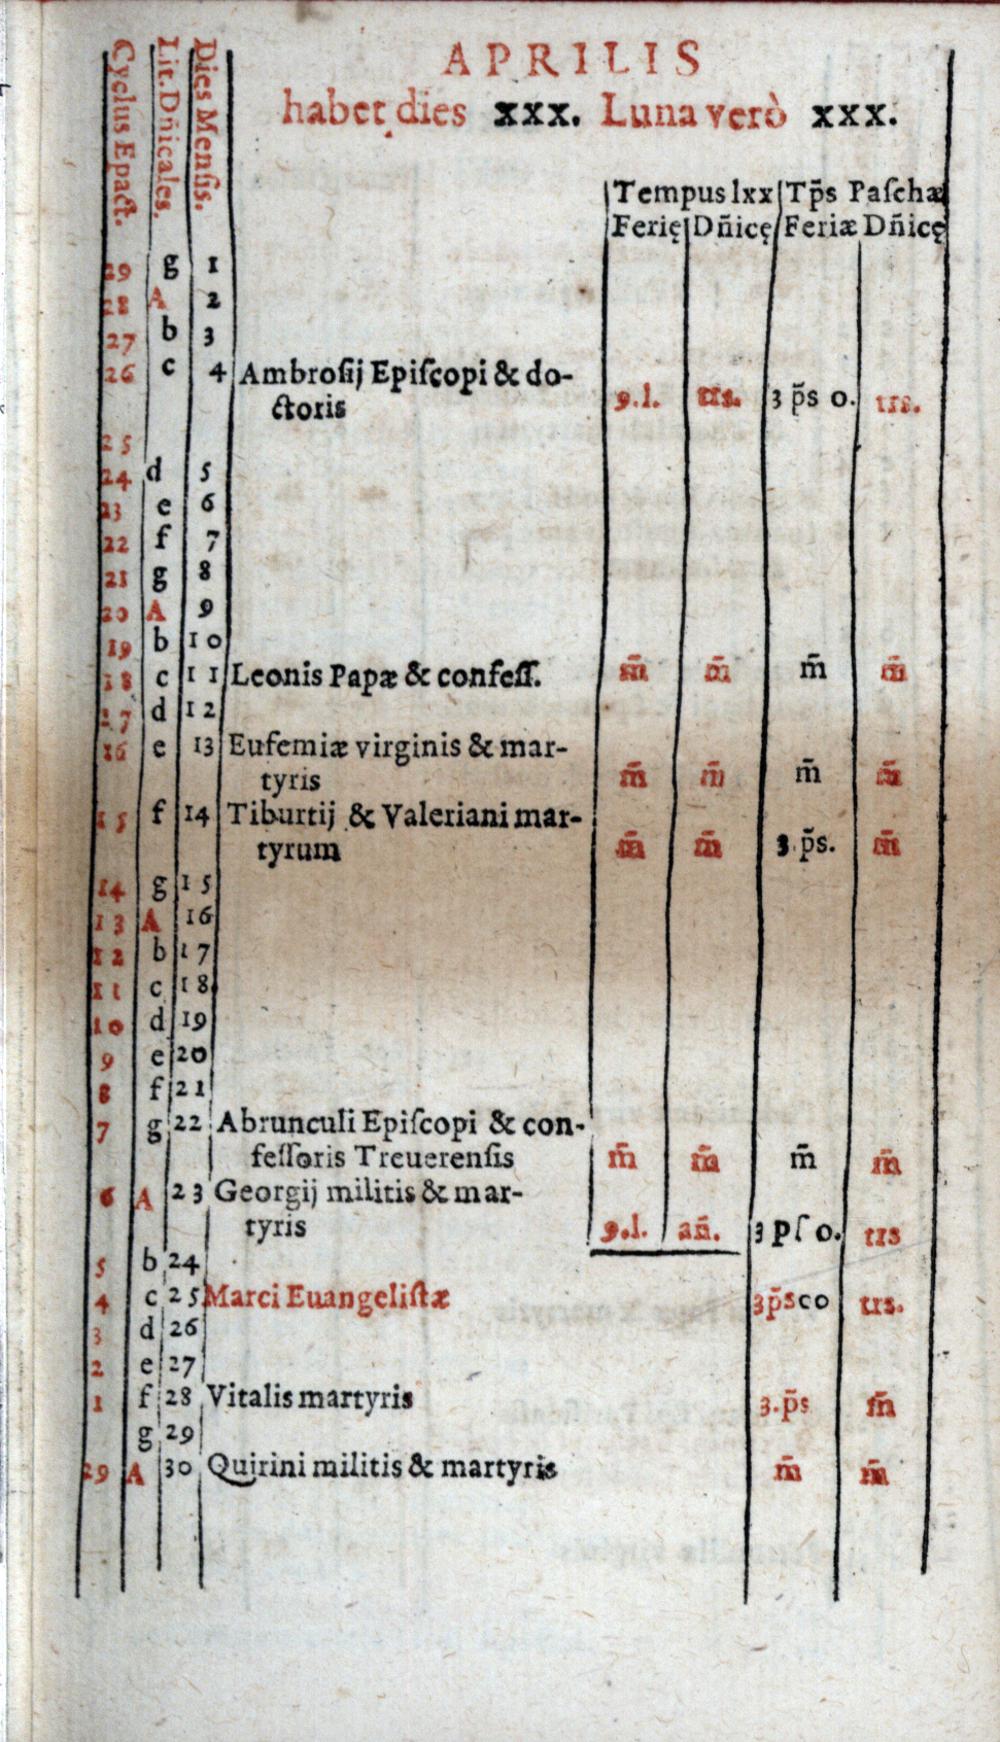 APRILIS
habet dies xxx. Luna verò xxx.
Cyclus Epact. Lit. Dñicales. Dies Mensis.
Tempus lxx Tp̃s Paſchæ
Ferię Dñicę Feriæ Dñicę
29 g 1
28 A 2
27 b 3
26 c 4 Ambroſij Epiſcopi & do-
ctoris 9.l. trs. 3 p̃s o. trs.
25
24 d 5
23 e 6
22 f 7
21 g 8
20 A 9
19 b 10
18 c 11 Leonis Papæ & confeſſ. m̃ m̃ m̃ m̃
17 d 12
16 e 13 Eufemiæ virginis & mar-
tyris m̃ m̃ m̃ m̃
15 f 14 Tiburtij & Valeriani mar-
tyrum m̃ m̃ 3.p̃s. m̃
14 g 15
13 A 16
12 b 17
11 c 18
10 d 19
9 e 20
8 f 21
7 g 22 Abrunculi Epiſcopi & con-
feſſoris Treuerenſis m̃ m̃ m̃ m̃
6 A 23 Georgij militis & mar-
tyris 9.l. añ. 3 pſ o. trs
5 b 24
4 c 25 Marci Euangeliſtæ 3p̃sco trs.
3 d 26
2 e 27
1 f 28 Vitalis martyris 3.p̃s m̃
g 29
29 A 30 Quirini militis & martyris m̃ m̃